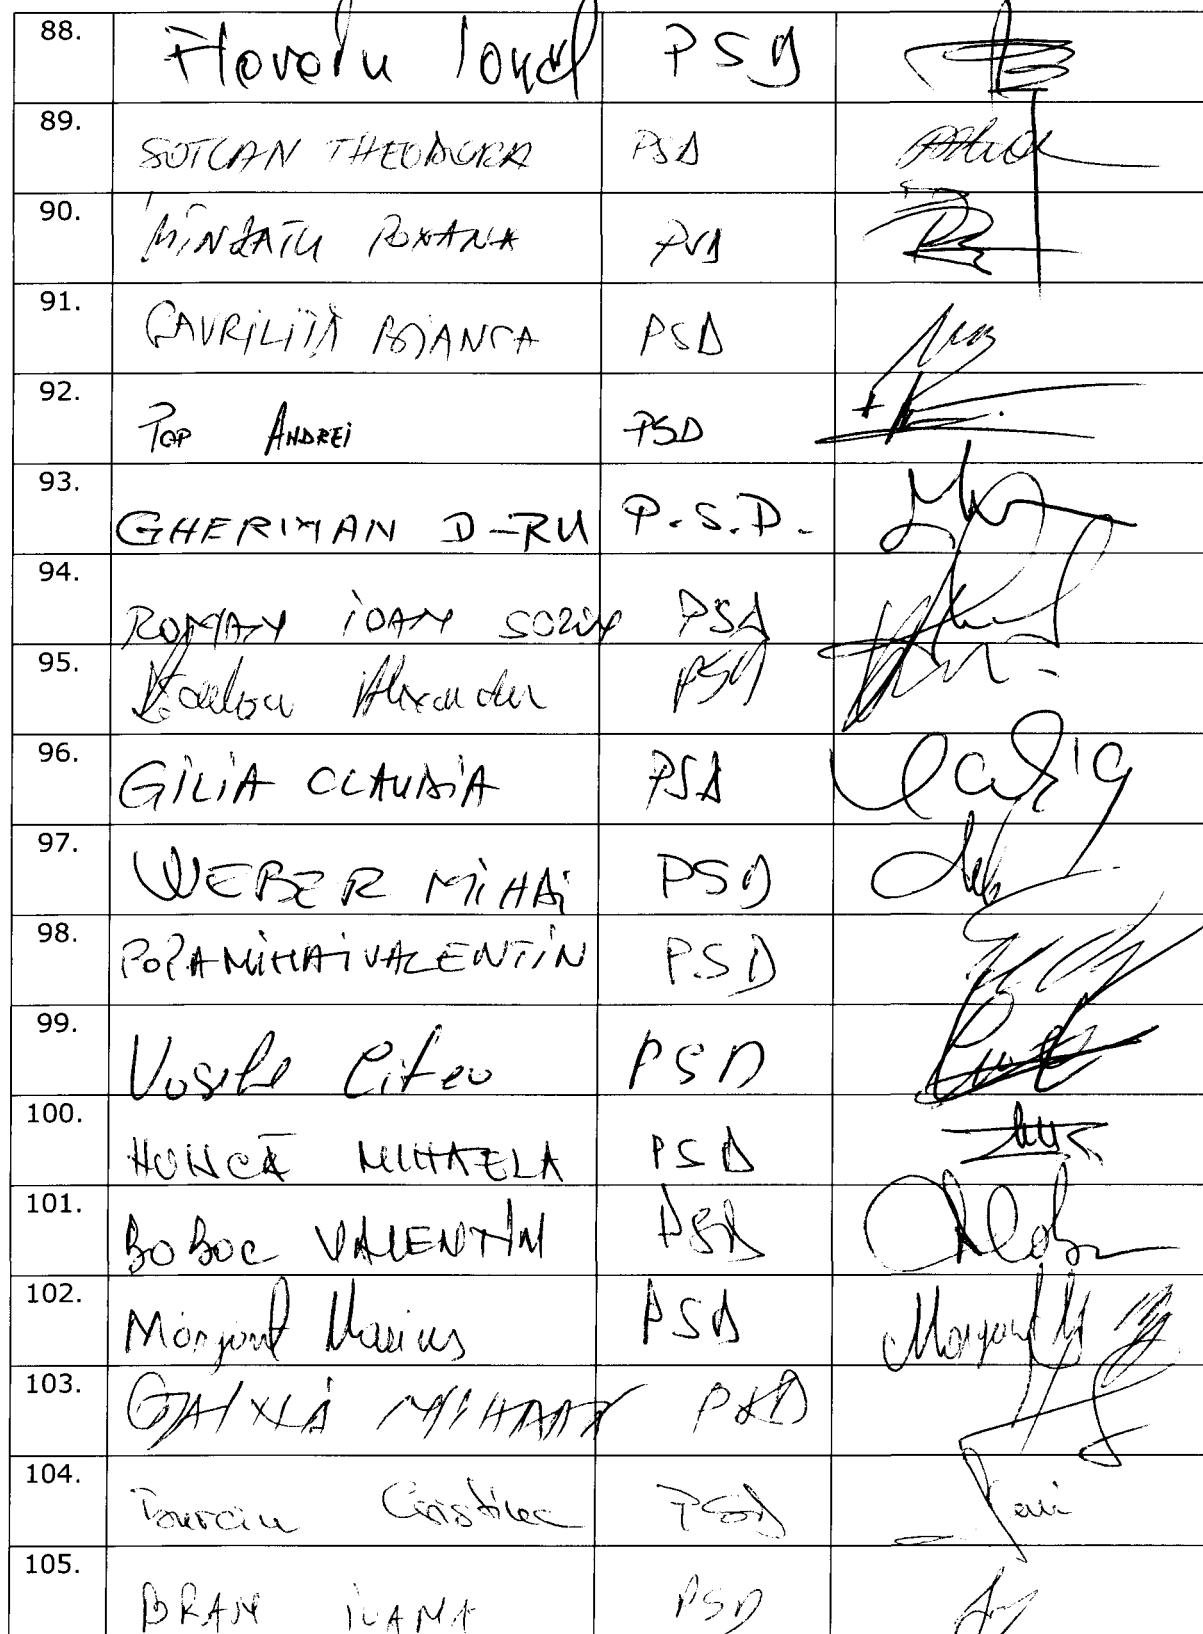 88. Floroiu Ionel PSD
89. SOTCAN THEODORA PSD
90. MÎNZATU ROXANA PSD
91. GAVRILIȚĂ BIANCA PSD
92. POP ANDREI PSD
93. GHERMAN D-RU P.S.D.
94. ROMAN IOAN SORIN PSD
95. Alexandru PSD
96. GILIA CLAUDIA PSD
97. WEBER MIHAI PSD
98. POPA MIHAI VALENTIN PSD
99. Vasile Citea PSD
100. HUNCĂ MIHAELA PSD
101. BOBOC VALENTIN PSD
102. Marius PSD
103. PSD
104. Cristina PSD
105. BRAN ILANA PSD